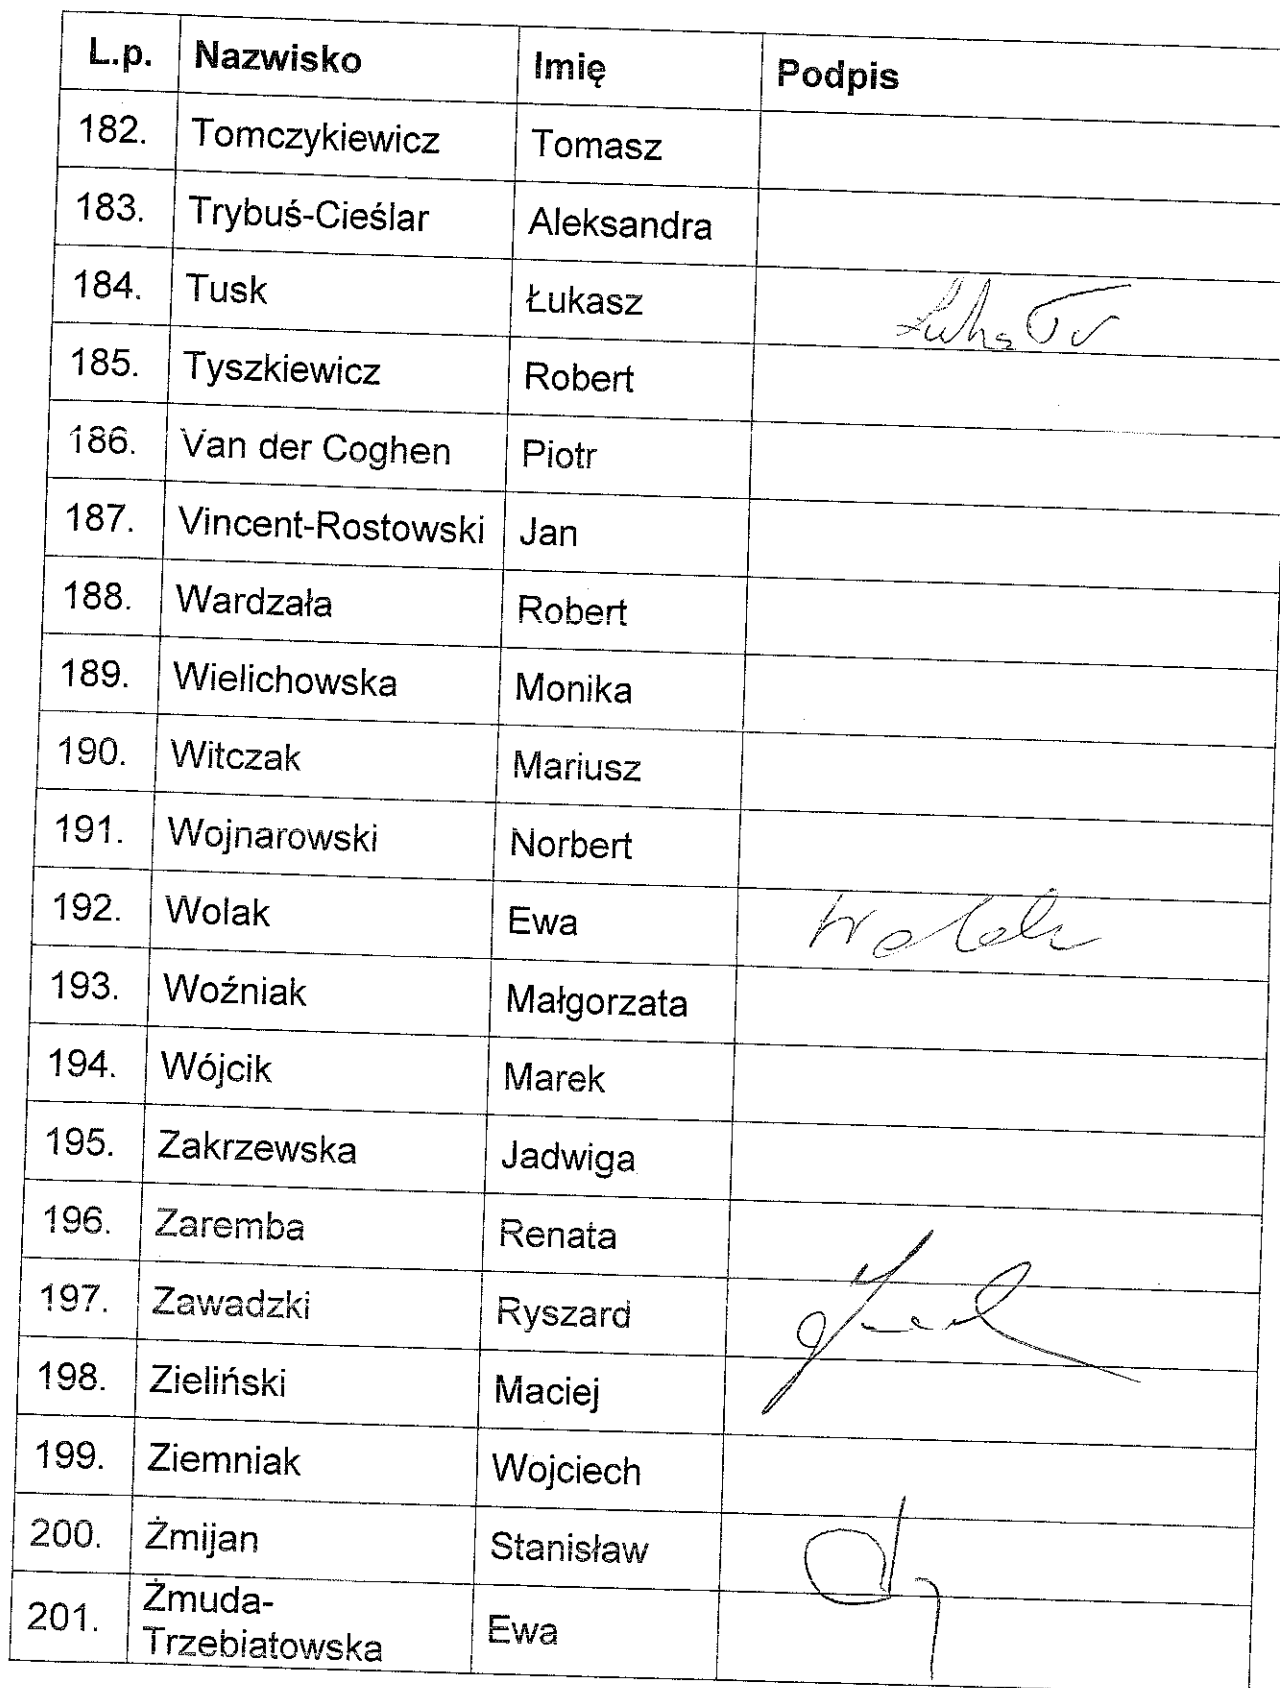 L.p. Nazwisko Imię Podpis
182. Tomczykiewicz Tomasz
183. Trybuś-Cieślar Aleksandra
184. Tusk Łukasz
185. Tyszkiewicz Robert
186. Van der Coghen Piotr
187. Vincent-Rostowski Jan
188. Wardzała Robert
189. Wielichowska Monika
190. Witczak Mariusz
191. Wojnarowski Norbert
192. Wolak Ewa Wolak
193. Woźniak Małgorzata
194. Wójcik Marek
195. Zakrzewska Jadwiga
196. Zaremba Renata
197. Zawadzki Ryszard
198. Zieliński Maciej
199. Ziemniak Wojciech
200. Żmijan Stanisław
201. Żmuda-
Trzebiatowska Ewa